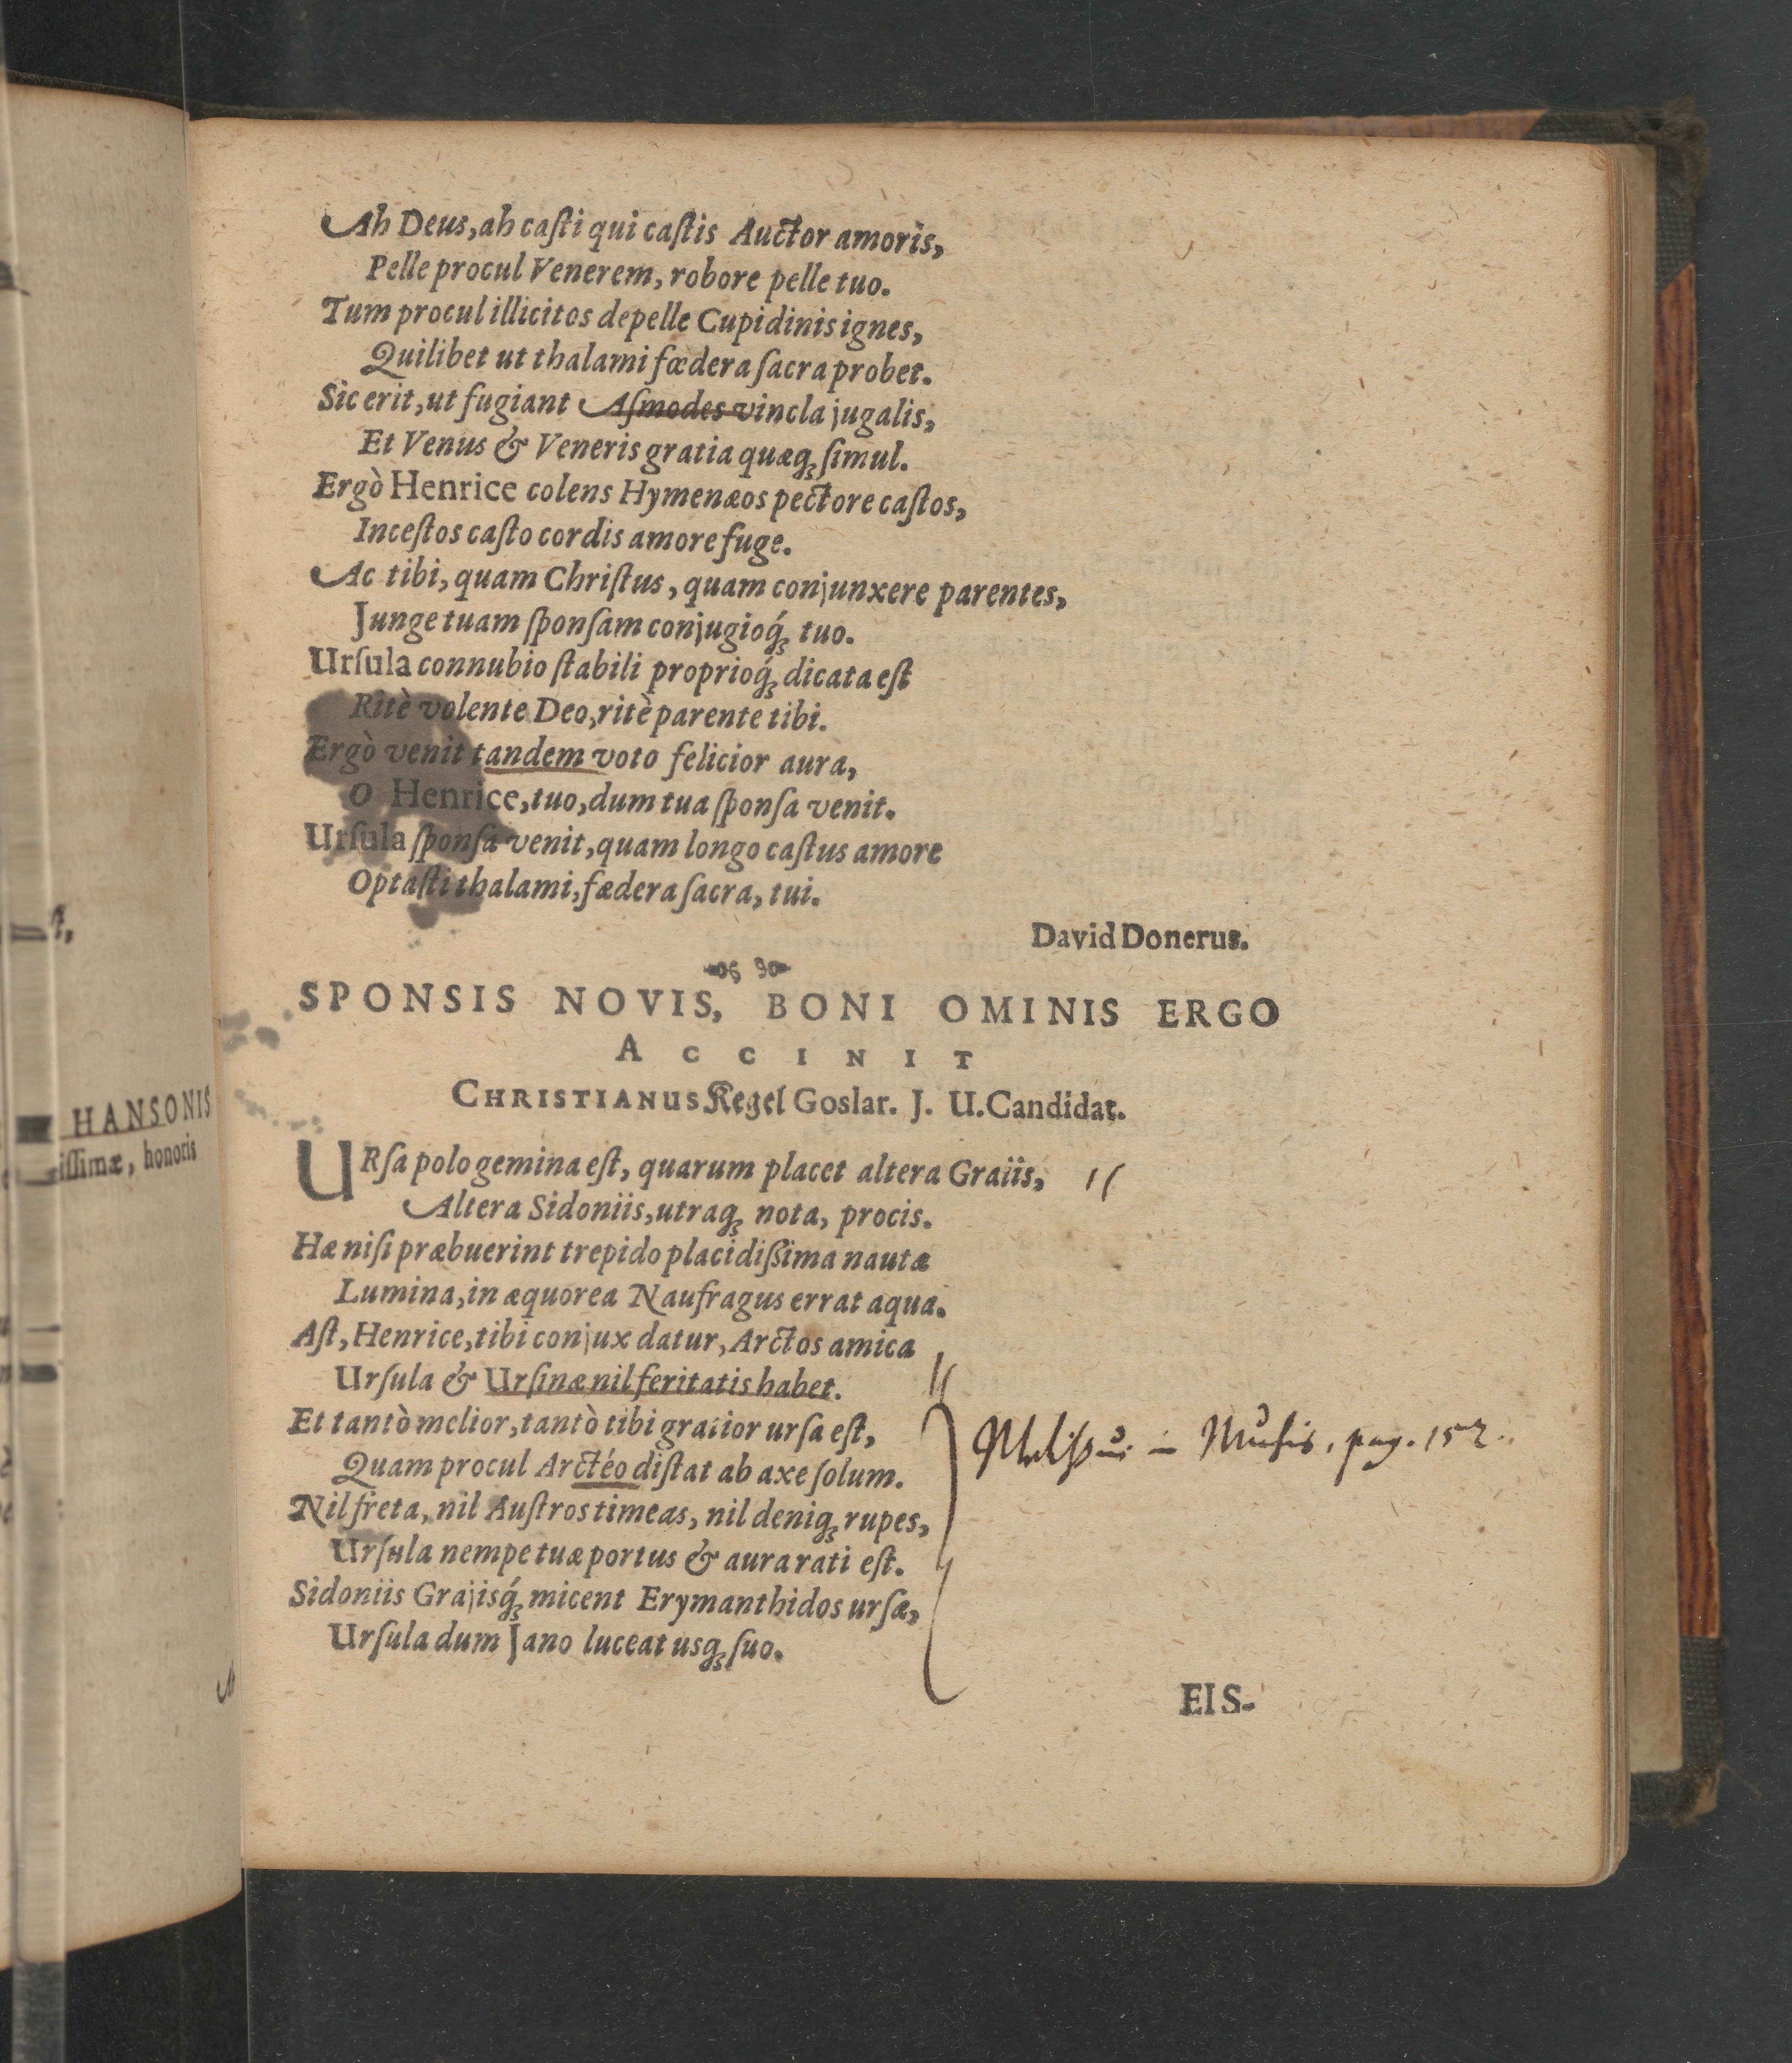 Ah Deus, ah caſti qui caſtis Auctor amoris,
Pelle procul Venerem, robore pelle tuo.
Tum procul illicitos depelle Cupidinis ignes,
Quilibet ut thalami fœdera ſacra probet.
Sic erit, ut fugiant Aſmodes vincla jugalis,
Et Venus & Veneris gratia quæq; ſimul.
Ergò Henrice colens Hymenæos pectore caſtos,
Inceſtos caſto cordis amore fuge.
Ac tibi, quam Chriſtus, quam conjunxere parentes,
Junge tuam ſponſam conjugioq́; tuo.
Urſula connubio ſtabili proprioq́; dicata eſt
Ritè volente Deo, ritè parente tibi.
Ergò venit tandem voto felicior aura,
O Henrice, tuo, dum tua ſponſa venit.
Urſula ſponſa venit, quam longo caſtus amore
Optaſti thalami, fædera ſacra, tui.
David Donerus.
SPONSIS NOVIS, BONI OMINIS ERGO
ACCINIT
CHRISTIANUS Regel Goslar. J. U. Candidat.
URſa polo gemina eſt, quarum placet altera Graiis,
Altera Sidoniis, utraq; nota, procis.
Hæ niſi præbuerint trepido placidiſſima nautæ
Lumina, in æquorea Naufragus errat aqua.
Aſt, Henrice, tibi conjux datur, Arctos amica
Urſula & Urſinæ nil feritatis habet.
Et tantò melior, tantò tibi gratior urſa eſt,
Quam procul Arctéo diſtat ab axe ſolum.
Nil freta, nil Auſtros timeas, nil deniq; rupes,
Urſula nempe tuæ portus & aura rati eſt.
Sidoniis Grajisq́; micent Erymanthidos urſæ,
Urſula dum Jano luceat usq; ſuo.
Melißus in Musis, pag. 152.
EIS-
HANSONIS
iſſimæ, honoris